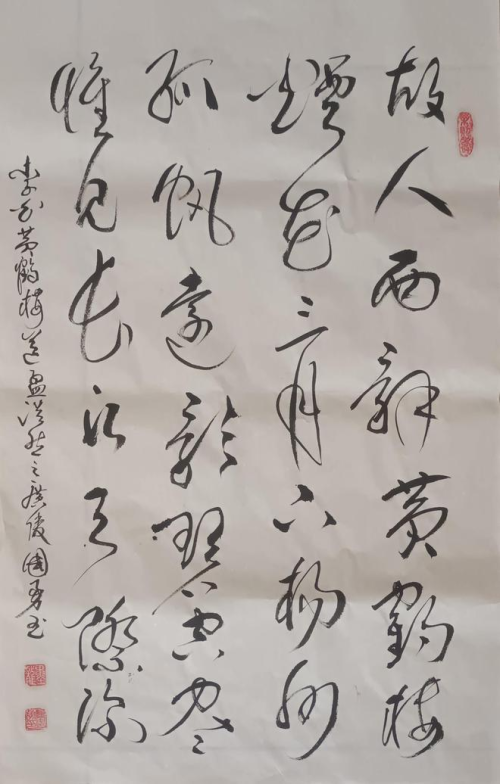 故人西辞黄鹤楼
煙花三月下揚州
孤帆遠影碧空尽
惟见长江天際流
李白黄鹤楼送孟浩然之廣陵周勇书